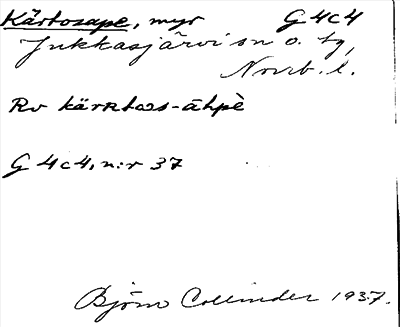 Kårtosape, myr G 4 c 4
Jukkasjärvi sn o. tg,
Norrb. l.
Rv kårrtos-āhpè
G 4 c 4, n:r 37
Björn Collinder 1937.